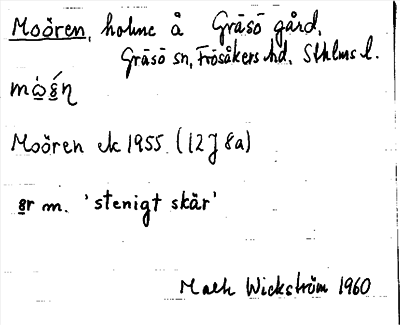 Moören, holme å Gräsö gård,
Gräsö sn, Frösåkers hd, Sthlms l.
Moören ek 1955 (12J 8a)
m. 'stenigt skär'
Math Wickström 1960